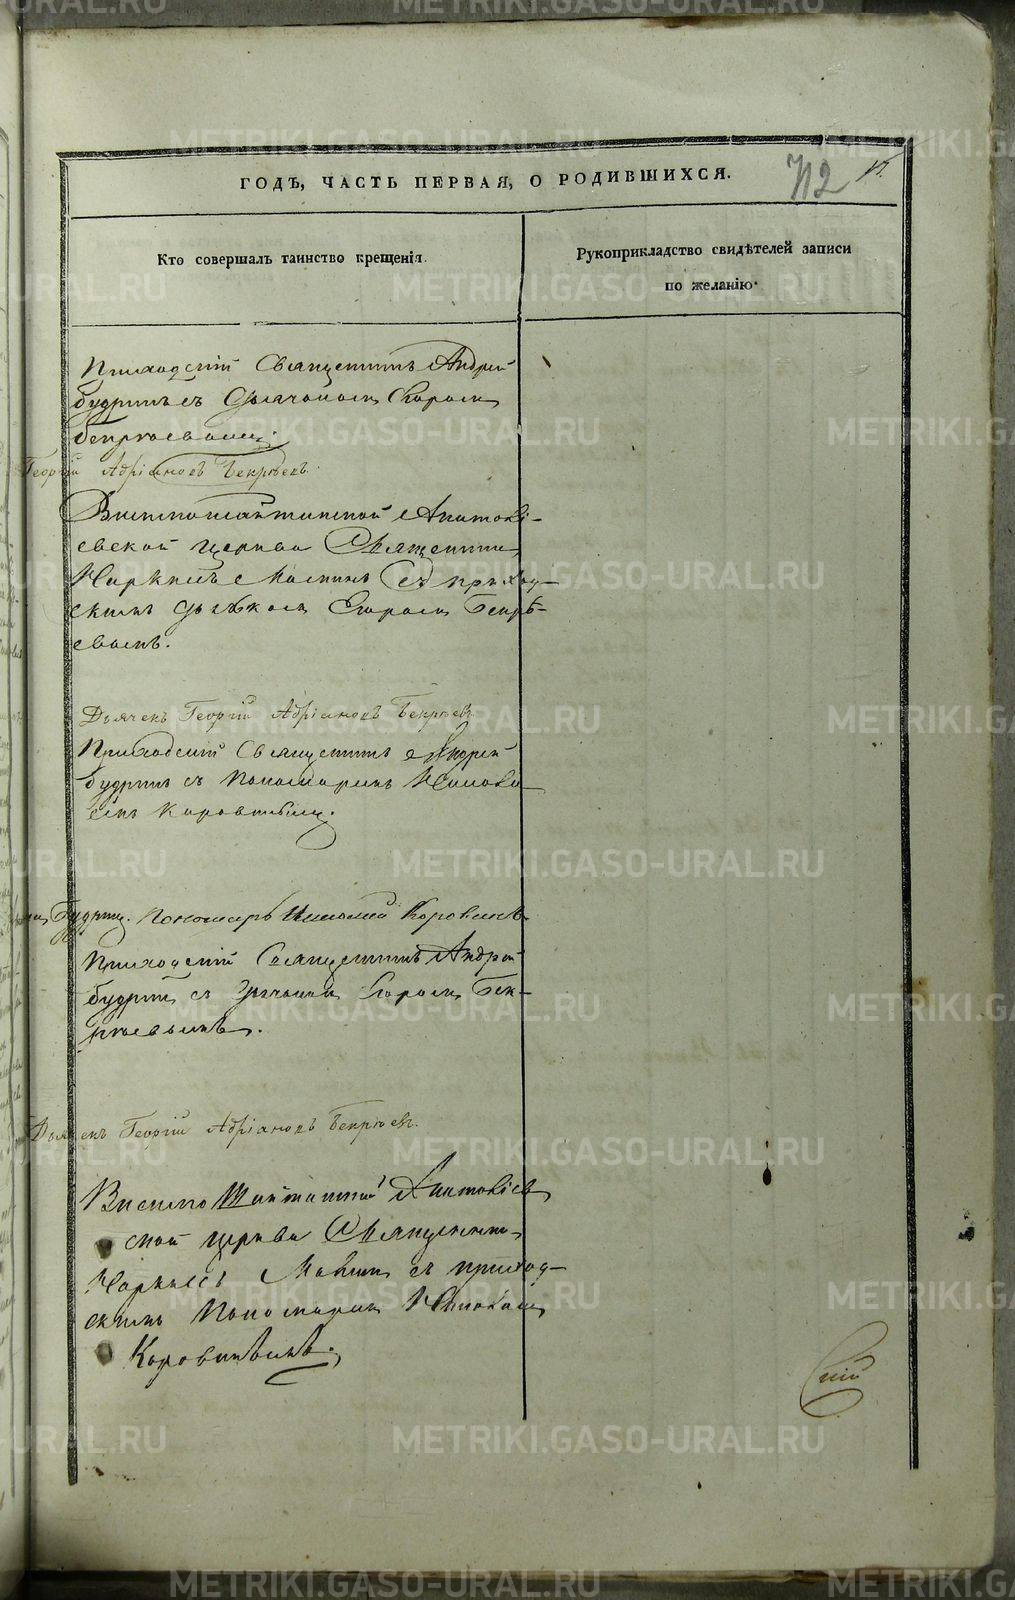 ГОДЪ, ЧАСТЬ ПЕРВАЯ, О РОДИВШИХСЯ.
712
Кто совершалъ таинство крещенія.
Рукоприкладство свидѣтелей записи
по желанію.
Приходскій Священникъ Андрей
Будринъ съ Дьячкомъ Егоромъ
Бекрѣевымъ.
Георгій Адріановъ Бекрѣевъ.
Висимошайтанской Анатолі-
евской церкви Священникъ
Наркисъ Маминъ съ приход-
скимъ дьячкомъ Егоромъ Бекрѣ-
евымъ.
Дьячекъ Георгій Адріановъ Бекрѣевъ
Приходскій Священникъ Андрей
Будринъ съ Пономаремъ Никола-
емъ Коровинымъ.
Будринъ. Пономарь Николай Коровинъ
Приходскій Священникъ Андрей
Будринъ съ Дьячкомъ Егоромъ Бек-
рѣевымъ.
Дьячекъ Георгій Адріановъ Бекрѣевъ.
Висимо Шайтанской Анатоліев
ской церкви Священникъ
Наркисъ Маминъ съ приход-
скимъ Пономаремъ Николаемъ
Коровинымъ.
METRIKI.GASO-URAL.RU